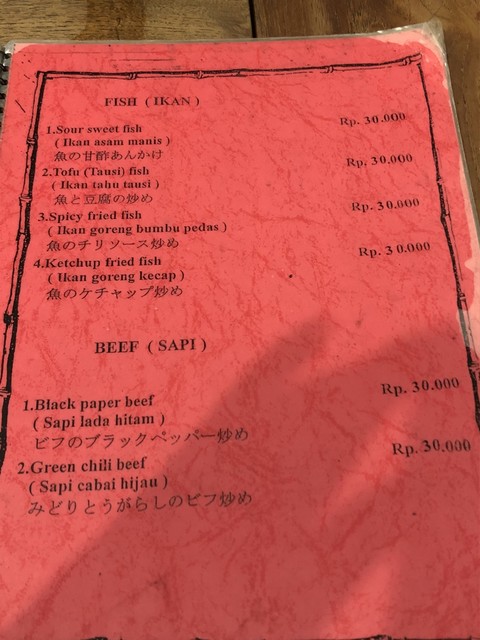 FISH ( IKAN )
1.Sour sweet fish Rp. 30.000
( Ikan asam manis )
魚の甘酢あんかけ
2.Tofu (Tausi) fish Rp. 30.000
( Ikan tahu tausi )
魚と豆腐の炒め
3.Spicy fried fish Rp. 30.000
( Ikan goreng bumbu pedas )
魚のチリソース炒め
4.Ketchup fried fish Rp. 30.000
( Ikan goreng kecap )
魚のケチャップ炒め
BEEF ( SAPI )
1.Black paper beef Rp. 30.000
( Sapi lada hitam )
ビフのブラックペッパー炒め
2.Green chili beef Rp. 30.000
( Sapi cabai hijau )
みどりとうがらしのビフ炒め